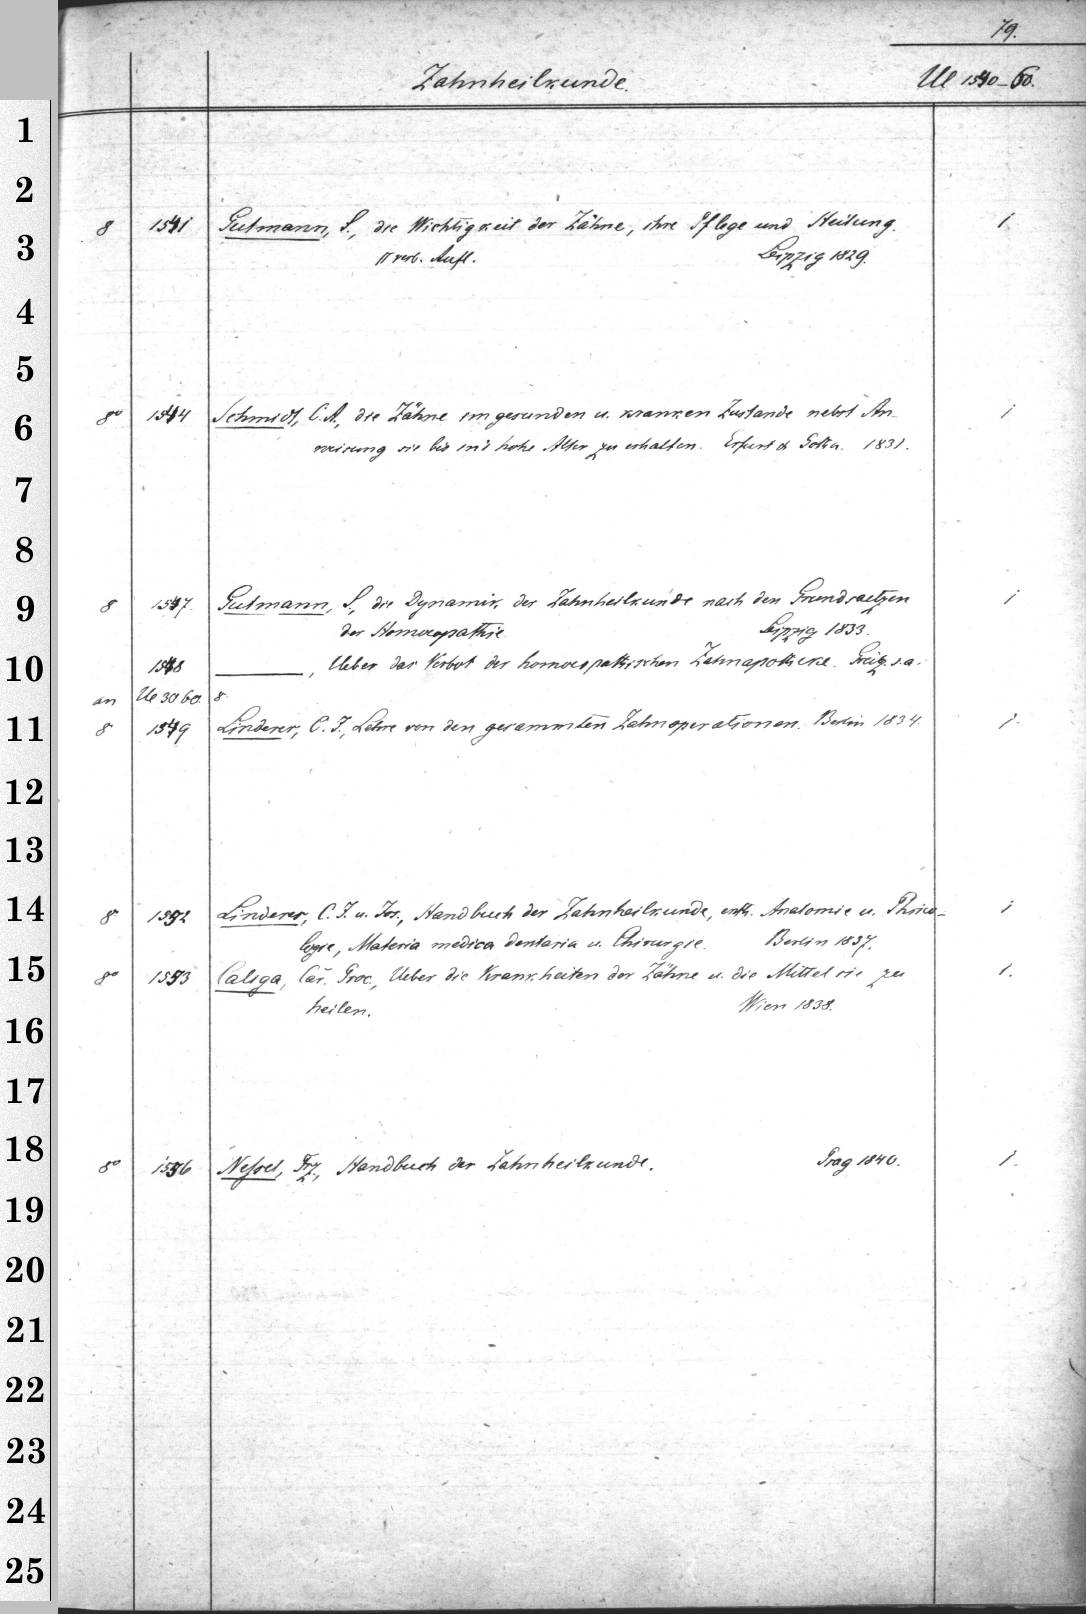 79.
Zahnheilkunde.
Ue 1540-60.
1
2
8 1541 Gutmann, S., die Wichtigkeit der Zähne, ihre Pflege und Heilung. 1
3
II verb. Aufl. Leipzig 1829.
4
5
8° 1544 Schmidt, C. A., die Zähne im gesunden u. kranken Zustande nebst An- 1
6
weisung sie bis in's hohe Alter zu erhalten. Erfurt & Gotha. 1831.
7
8
9
8 1547. Gutmann, S., die Dynamik der Zahnheilkunde nach den Grundsaetzen 1
der Homoeopathie. Leipzig 1833.
10
1548 , Ueber das Verbot der homoeopathischen Zahnapotheke. Greitz s. a.
an Ue 3060. 8
11
8 1549 Linderer, C. J., Lehre von den gesammten Zahnoperationen. Berlin 1834. 1.
12
13
14
8 1552 Linderer, C. J. u. Jos., Handbuch der Zahnheilkunde, enth. Anatomie u. Phisio- 1
logie, Materia medica dentaria u. Chirurgie. Berlin 1837.
15
8° 1553 Caliga, Proc., Ueber die Krankheiten der Zähne u. die Mittel sie zu 1.
heilen. Wien 1838.
16
17
18
8° 1556 Nessel, Frz., Handbuch der Zahnheilkunde. Prag 1840. 1.
19
20
21
22
23
24
25